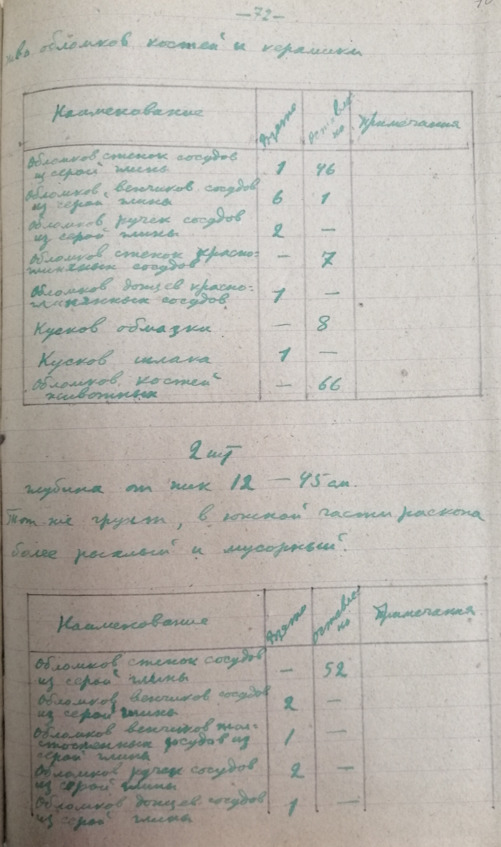 —72—
обломков костей и керамики
Наименование Взято Оставлено Примечания
Обломков стенок сосудов
из серой глины 1 46
Обломков венчиков сосудов
из серой глины 6 1
Обломков ручек сосудов
из серой глины 2 —
Обломков стенок красно-
глиняных сосудов — 7
Обломков донцев красно-
глинянных сосудов 1 —
Кусков обмазки — 8
Кусков шлака 1 —
Обломков костей
животных — 66
2 шт
глубина от 12 — 45 см.
Тот же грунт, в южной части раскопа
более рыхлый и мусорный.
Наименование Взято Оставлено Примечания
Обломков стенок сосудов
из серой глины — 52
Обломков венчиков сосудов
из серой глины 2 —
Обломков венчиков тол-
стостенных сосудов из
серой глины 1 —
Обломков ручек сосудов
из серой глины 2 —
Обломков донцев сосудов
из серой глины 1 —